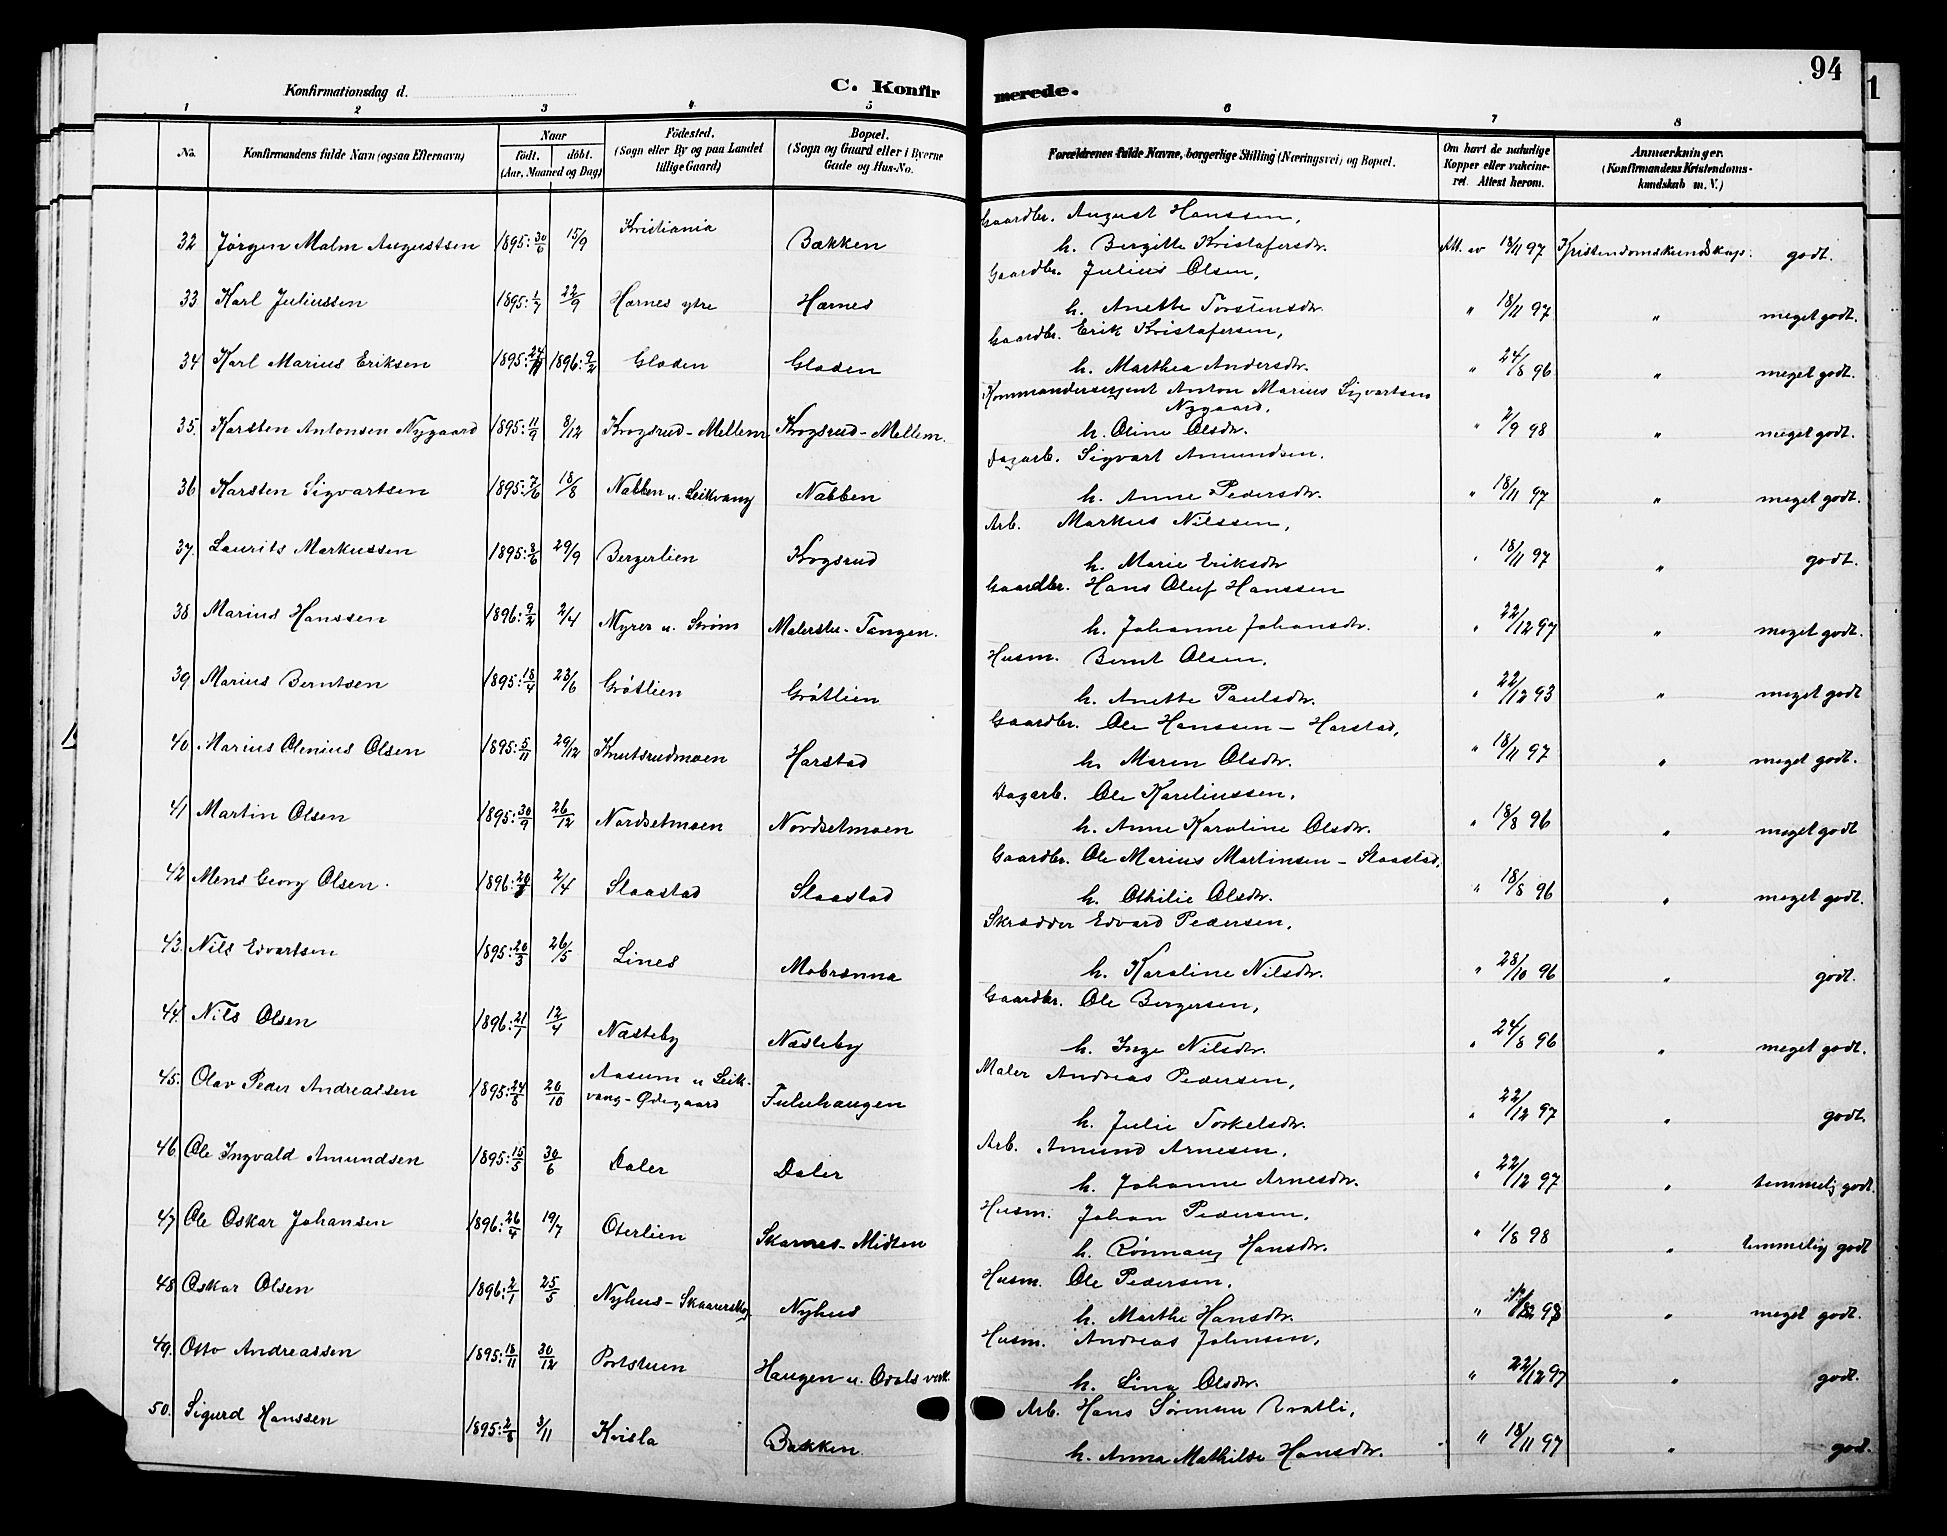 94
1
Konfirmationsdag d.
C. Konfir
merede.
1 2 3 4 5 6 7 8
No.
Konfirmandens fulde Navn (ogsaa Efternavn)
Naar
født. døbt.
(Aar, Maaned og Dag)
Födested.
(Sogn eller By og paa Landet
tillige Gaard)
Bopæl.
(Sogn og Gaard eller i Byerne
Gade og Hus-No.
Forældrenes fulde Navne, borgerlige Stilling (Næringsvei) og Bopæl.
Om havt de naturlige
Kopper eller vakcine-
ret. Attest herom.
Anmærkninger.
(Konfirmandens Kristendoms-
kundskab m. V.)
Gaardbr. August Hanssen,
32 Jørgen Malm Augustsen 1895: 30/6 15/9 Kristiania Bakken h. Bergitte Kristafersdtr. Att. av 18/11 97 Kristendomskundskap: godt.
Gaardbr. Julius Olsen,
33 Karl Juliussen 1895: 1/7 22/9 Hornes ytre Hornes h. Anette Torstensdtr. " 18/11 97 " meget godt.
Gaardbr. Erik Kristafersen,
34 Karl Marius Eriksen 1895: 24/11 1896: 9/2 Gloden Gloden h. Marthea Andersdtr. " 24/8 96 " meget godt.
Kommandersergent Anton Marius Sigvartsen
Nygaard,
35. Karsten Antonsen Nygaard 1895: 11/9 8/12 Krogsrud-Mellem Krogsrud-Mellem. h. Oline Olsdtr. " 2/9 98 " meget godt.
Dagarb. Sigvart Amundsen.
36 Karsten Sigvartsen 1895: 7/6 18/8 Nabben u. Leikvang Nabben h. Anne Pedersdtr. " 18/11 97 " meget godt.
Arb. Markus Nilssen,
37. Laurits Markussen 1895: 8/6 29/9 Bergerlien Krogsrud h. Marie Eriksdtr " 18/11 97 " godt.
Gaardbr. Hans Oluf Hanssen
38. Marius Hanssen 1896: 9/2 2/4 Myrer u. Strøm Malerstu-Tangen. h. Johanne Johansdtr. " 22/12 97 " meget godt.
Husm. Bernt Olsen,
39 Marius Berntsen 1895: 18/4 23/6 Grøtlien Grøtlien h. Anette Paulsdtr. " 22/12 93 " meget godt
Gaardbr. Ole Hanssen - Harstad,
40 Marius Olenius Olsen 1895: 5/11 29/12 Knutsrudmoen Harstad h. Maren Olsdtr. " 18/11 97 " meget godt.
Dagarb. Ole Kareliussen.
41 Martin Olsen 1895: 30/9 26/12 Nordsetmoen Nordsetmoen h. Anne Karoline Olsdtr. " 18/8 96 " meget godt
Gaardbr. Ole Marius Martinsen - Slaastad,
42 Mens Georg Olsen. 1896: 2/4 Slaastad Slaastad h. Othilie Olsdtr. " 18/8 96 " meget godt.
Skrædder Edvard Pedersen,
43. Nils Edvartsen 1895: 20/3 26/5 Lines Mobrænna h. Karoline Nilsdtr. " 28/10 96 " godt.
Gaardbr. Ole Bergersen,
44. Nils Olsen 1896: 21/1 12/4 Næsteby Næsteby h. Inge Nilsdtr. " 24/8 96 " meget godt.
Maler Andreas Pedersen,
45. Olav Peder Andreassen 1895: 24/8 20/10 Aasum u Leik-
vang-Ødegaard Fuluhaugen h. Julie Torkelsdtr. " 22/12 97 " godt.
Arb. Amund Arnesen,
46 Ole Ingvald Amundsen 1895: 15/5 30/6 Daler Daler h. Johanne Arnesdtr. " 22/12 97 " temmelig godt.
Husm. Johan Pedersen,
47 Ole Oskar Johansen 1896: 26/4 19/7 Oterlien Skarnes-Midten h. Rønnaug Hansdtr. " 1/8 98 " temmelig godt
Husm. Ole Pedersen,
48 Oskar Olsen 1896: 2/1 25/5 Nyhus-Skaarerskog Nyhus h. Marthe Hansdtr. " meget godt.
Husm. Andreas Johnsen,
49. Otto Andreassen 1895: 18/11 30/12 Portstuen Haugen u. Odals verk h. Lina Olsdtr. " 22/12 97 " godt.
Arb. Hans Sørensen Bratli,
50. Sigurd Hanssen 1895: 2/8 3/11 Kvisla Bakken h. Anna Mathilde Hansdtr. " 18/11 97 " godt.